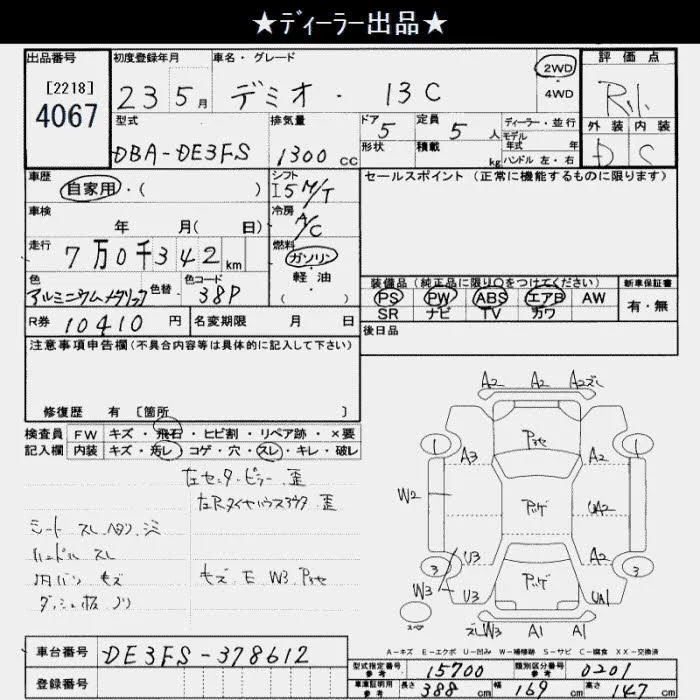 ★ディーラー出品★
出品番号 初度登録年月 車名・グレード 2WD 評価点
[2218] 23 5月 デミオ・13C ・4WD R.1.
4067 型式 排気量 ドア 定員 ディーラー・並行 外装 内装
DBA-DE3FS 1300 CC 5 5人 モデル年式 年 D S
形状 積載 kg ハンドル 左・右
車歴 シフト セールスポイント(正常に機能するものに限ります)
自家用・( ) I5 M/T
車検 冷房
年 月( 日) A/C
走行 燃料
7万0千342km ガソリン
色 色替 色コード 軽・油
アルミニウムメタリック 38P ( )
装備品(純正品に限り○をつけてください) 新車保証書
PS PW ABS エアB AW 有・無
SR ナビ TV カワ
R券 10410円 名変期限 月 日 後日品
注意事項申告欄(不具合内容等は具体的に記入して下さい)
修復歴 有 [箇所 ]
検査員 FW キズ・飛石・ヒビ割・リペア跡・×要
記入欄 内装 キズ・汚レ・コゲ・穴・スレ・キレ・破レ
左センターピラー歪
左Rタイヤハウスアウタ歪
シート スレ ヘタリ シミ
ハンドル スレ
内バリ キズ
ダッシュ板 ノリ
キズ E W3 Pﾖｾ
A2 A2 A2ズレ
1 Pﾖｾ 1
A3 A2
W2 Pﾊｹﾞ UA2
U3 A2
3 Pﾊｹﾞ 3
W3 U3 UA1
スペア
ズレW3 A1 A1
A-キズ E-エクボ U-凹み W-補修跡 S-サビ C-腐食 XX-交換済
車台番号 DE3FS-378612
登録番号
型式指定番号 参考 15700 類別区分番号 参考 0201
車庫証明用 参考 長さ 388cm 幅 169cm 高さ 147cm